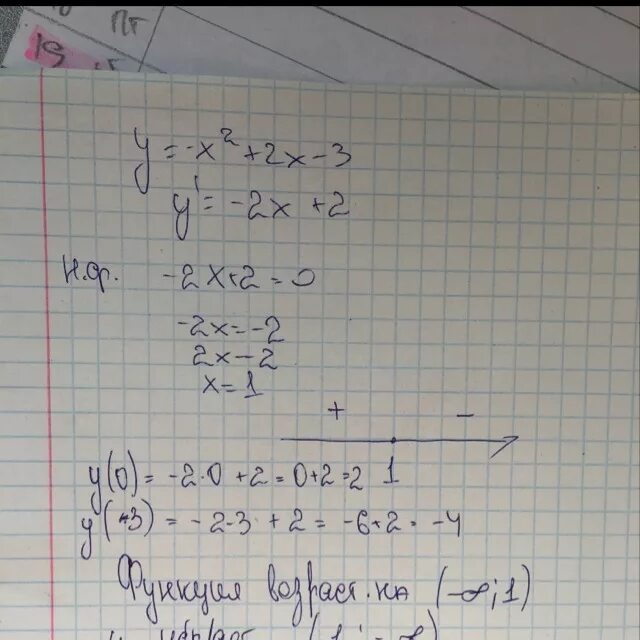 Пт
19
y = -x² + 2x - 3
y' = -2x + 2
Н.ф. -2x+2=0
-2x=-2
2x-2
x=1
+ -
1
y(0) = -2·0 +2 = 0+2=2
y(3) = -2·3 + 2 = -6+2 = -4
Функция возраст. на (-∞;1)